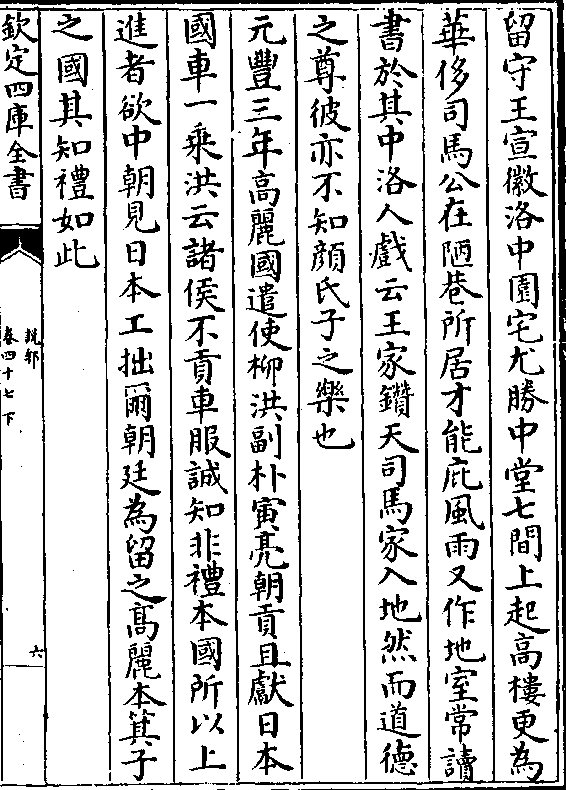 留守王宣徽洛中園宅尤勝中堂七間上起高樓更為
華侈司馬公在陋巷所居才能庇風雨又作地室常讀
書於其中洛人戲云王家鑽天司馬家入地然而道德
之尊彼亦不知顔氏子之樂也
元豐三年高麗國遣使柳洪副朴寅亮朝貢且獻日本
國車一乗洪云諸侯不貢車服誠知非禮本國所以上
進者欲中朝見日本工拙爾朝廷為留之髙麗本箕子
之國其知禮如此
欽定四庫全書
説郛
卷四十七下
六